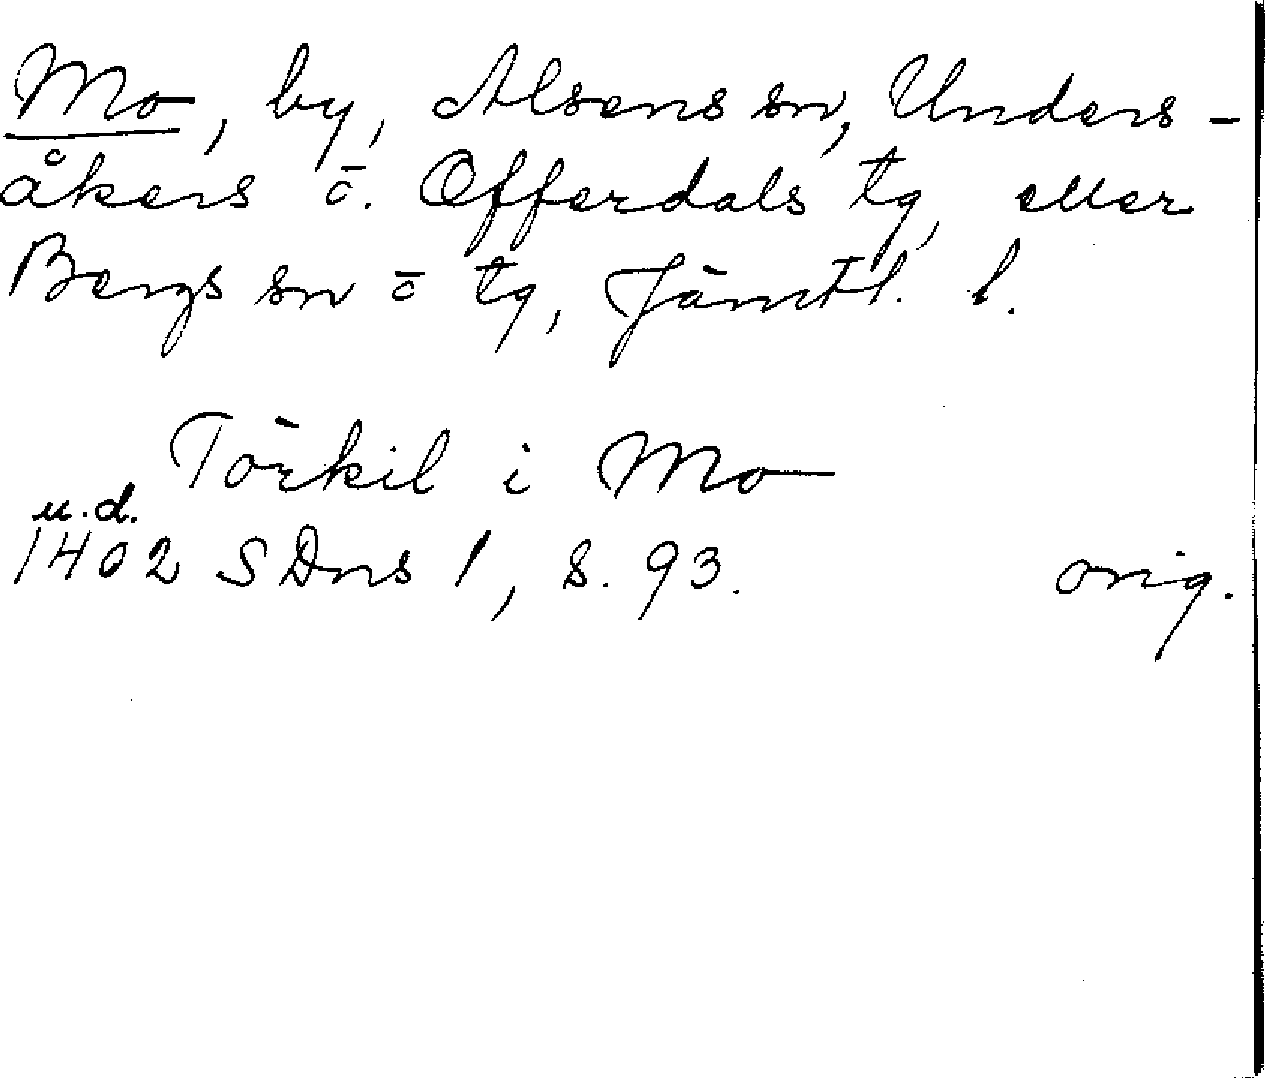 Mo, by, Alsens sn, Unders-
åkers o. Offerdals tg, eller
Bergs sn o tg, Jämtl. l.
Törkil i Mo
u.d.
1402 SDns 1, s. 93. orig.